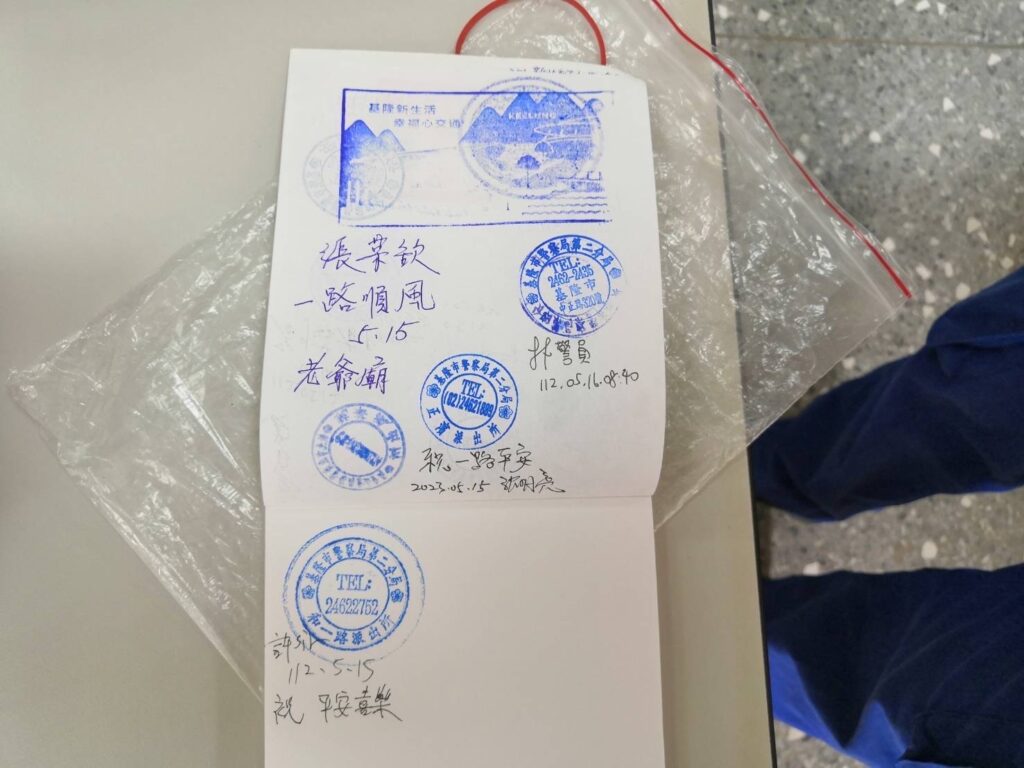 基隆新生活
幸福心交通
張葉欽
一路順風
5.15
老爺廟
基隆市警察局第二分局
TEL:
2462-2435
基隆市
林警員
112.05.16.08:40
基隆市警察局第二分局
TEL:
(02)24621889
派出所
祝一路平安
2023.05.15
基隆市警察局第二分局
TEL:
24622752
和一路派出所
許
112.5.15
祝 平安喜樂